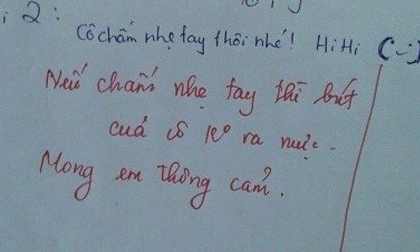 2:
Cô chấm nhẹ tay thôi nhé! HiHi (:)
Nếu chấm nhẹ tay thì bút
của cô k° ra mực.
Mong em thông cảm.